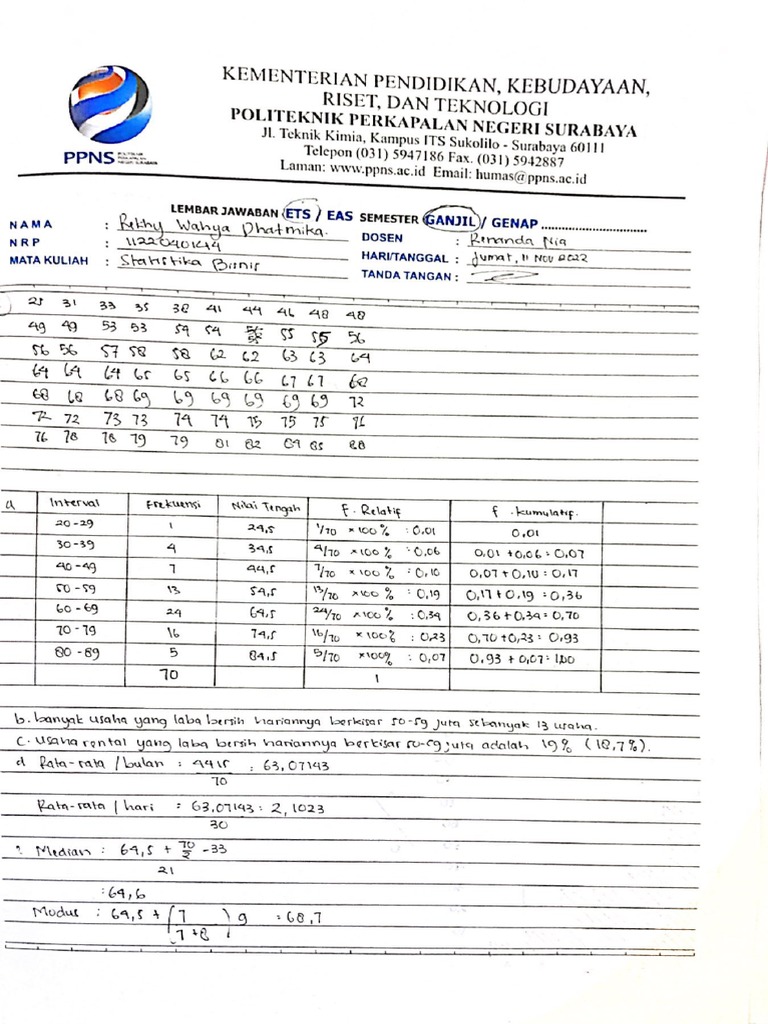 KEMENTERIAN PENDIDIKAN, KEBUDAYAAN,
RISET, DAN TEKNOLOGI
POLITEKNIK PERKAPALAN NEGERI SURABAYA
Jl. Teknik Kimia, Kampus ITS Sukolilo - Surabaya 60111
Telepon (031) 5947186 Fax. (031) 5942887
Laman: www.ppns.ac.id Email: humas@ppns.ac.id
PPNS POLITEKNIK PERKAPALAN NEGERI SURABAYA
LEMBAR JAWABAN ETS / EAS SEMESTER GANJIL / GENAP
NAMA : Rekhy Wahya Dhatmika.
NRP :
MATA KULIAH : Statistika Bisnis
DOSEN : Renanda Nia
HARI/TANGGAL : Jumat, 11 NOV 2022
TANDA TANGAN :
31 33 35 38 41 44 46 48 48
49 49 53 53 54 54 55 55 56
56 56 57 58 58 62 62 63 63 64
64 64 64 65 65 66 66 67 67 68
68 68 68 69 69 69 69 69 69 72
72 72 73 73 74 74 75 75 75 76
76 78 78 79 79 81 82 84 85 88
a Interval Frekuensi Nilai Tengah F. Relatif f. Kumulatif
20-29 1 24,5 1/70 × 100% : 0,01 0,01
30-39 4 34,5 4/70 × 100% : 0,06 0,01 + 0,06 = 0,07
40-49 7 44,5 7/70 × 100% : 0,10 0,07 + 0,10 = 0,17
50-59 13 54,5 13/70 × 100% : 0,19 0,17 + 0,19 = 0,36
60-69 24 64,5 24/70 × 100% : 0,34 0,36 + 0,34 = 0,70
70-79 16 74,5 16/70 × 100% : 0,23 0,70 + 0,23 = 0,93
80-89 5 84,5 5/70 × 100% : 0,07 0,93 + 0,07 = 1,00
70 1
b. banyak usaha yang laba bersih hariannya berkisar 50-59 juta sebanyak 13 usaha.
c. Usaha rental yang laba bersih hariannya berkisar 50-59 juta adalah 19% (18,7%).
d Rata-rata / bulan : 4415 : 63,07143
70
Rata-rata / hari : 63,07143 : 2,1023
30
Median : 64,5 + 70/2 - 33
21
: 64,6
Modus : 64,5 + ( 7 ) 9 = 68,7
7 + 8